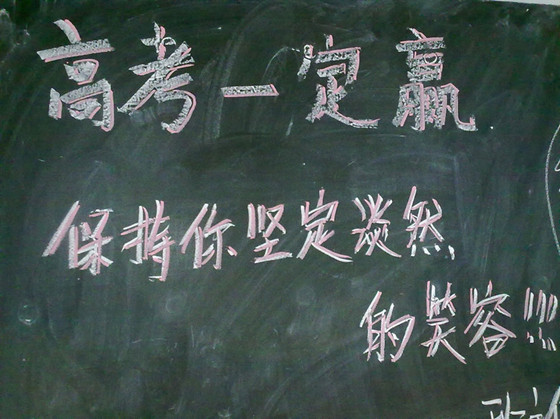 高考一定赢
保持你坚定淡然
的笑容!!!